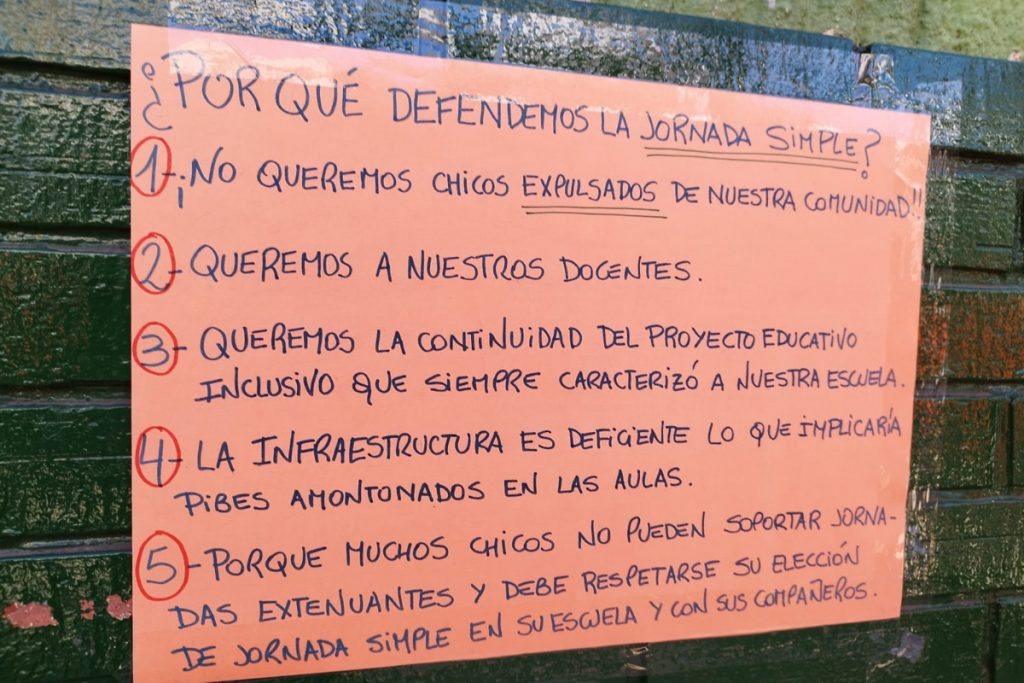 ¿POR QUÉ DEFENDEMOS LA JORNADA SIMPLE?
1-¡NO QUEREMOS CHICOS EXPULSADOS DE NUESTRA COMUNIDAD!!
2- QUEREMOS A NUESTROS DOCENTES.
3- QUEREMOS LA CONTINUIDAD DEL PROYECTO EDUCATIVO
INCLUSIVO QUE SIEMPRE CARACTERIZÓ A NUESTRA ESCUELA.
4- LA INFRAESTRUCTURA ES DEFICIENTE LO QUE IMPLICARÍA
PIBES AMONTONADOS EN LAS AULAS.
5- PORQUE MUCHOS CHICOS NO PUEDEN SOPORTAR JORNA-
DAS EXTENUANTES Y DEBE RESPETARSE SU ELECCIÓN
DE JORNADA SIMPLE EN SU ESCUELA Y CON SUS COMPAÑEROS.